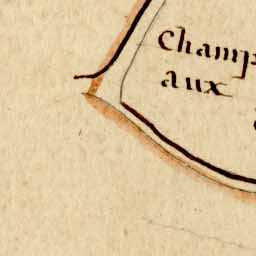 Champ
aux